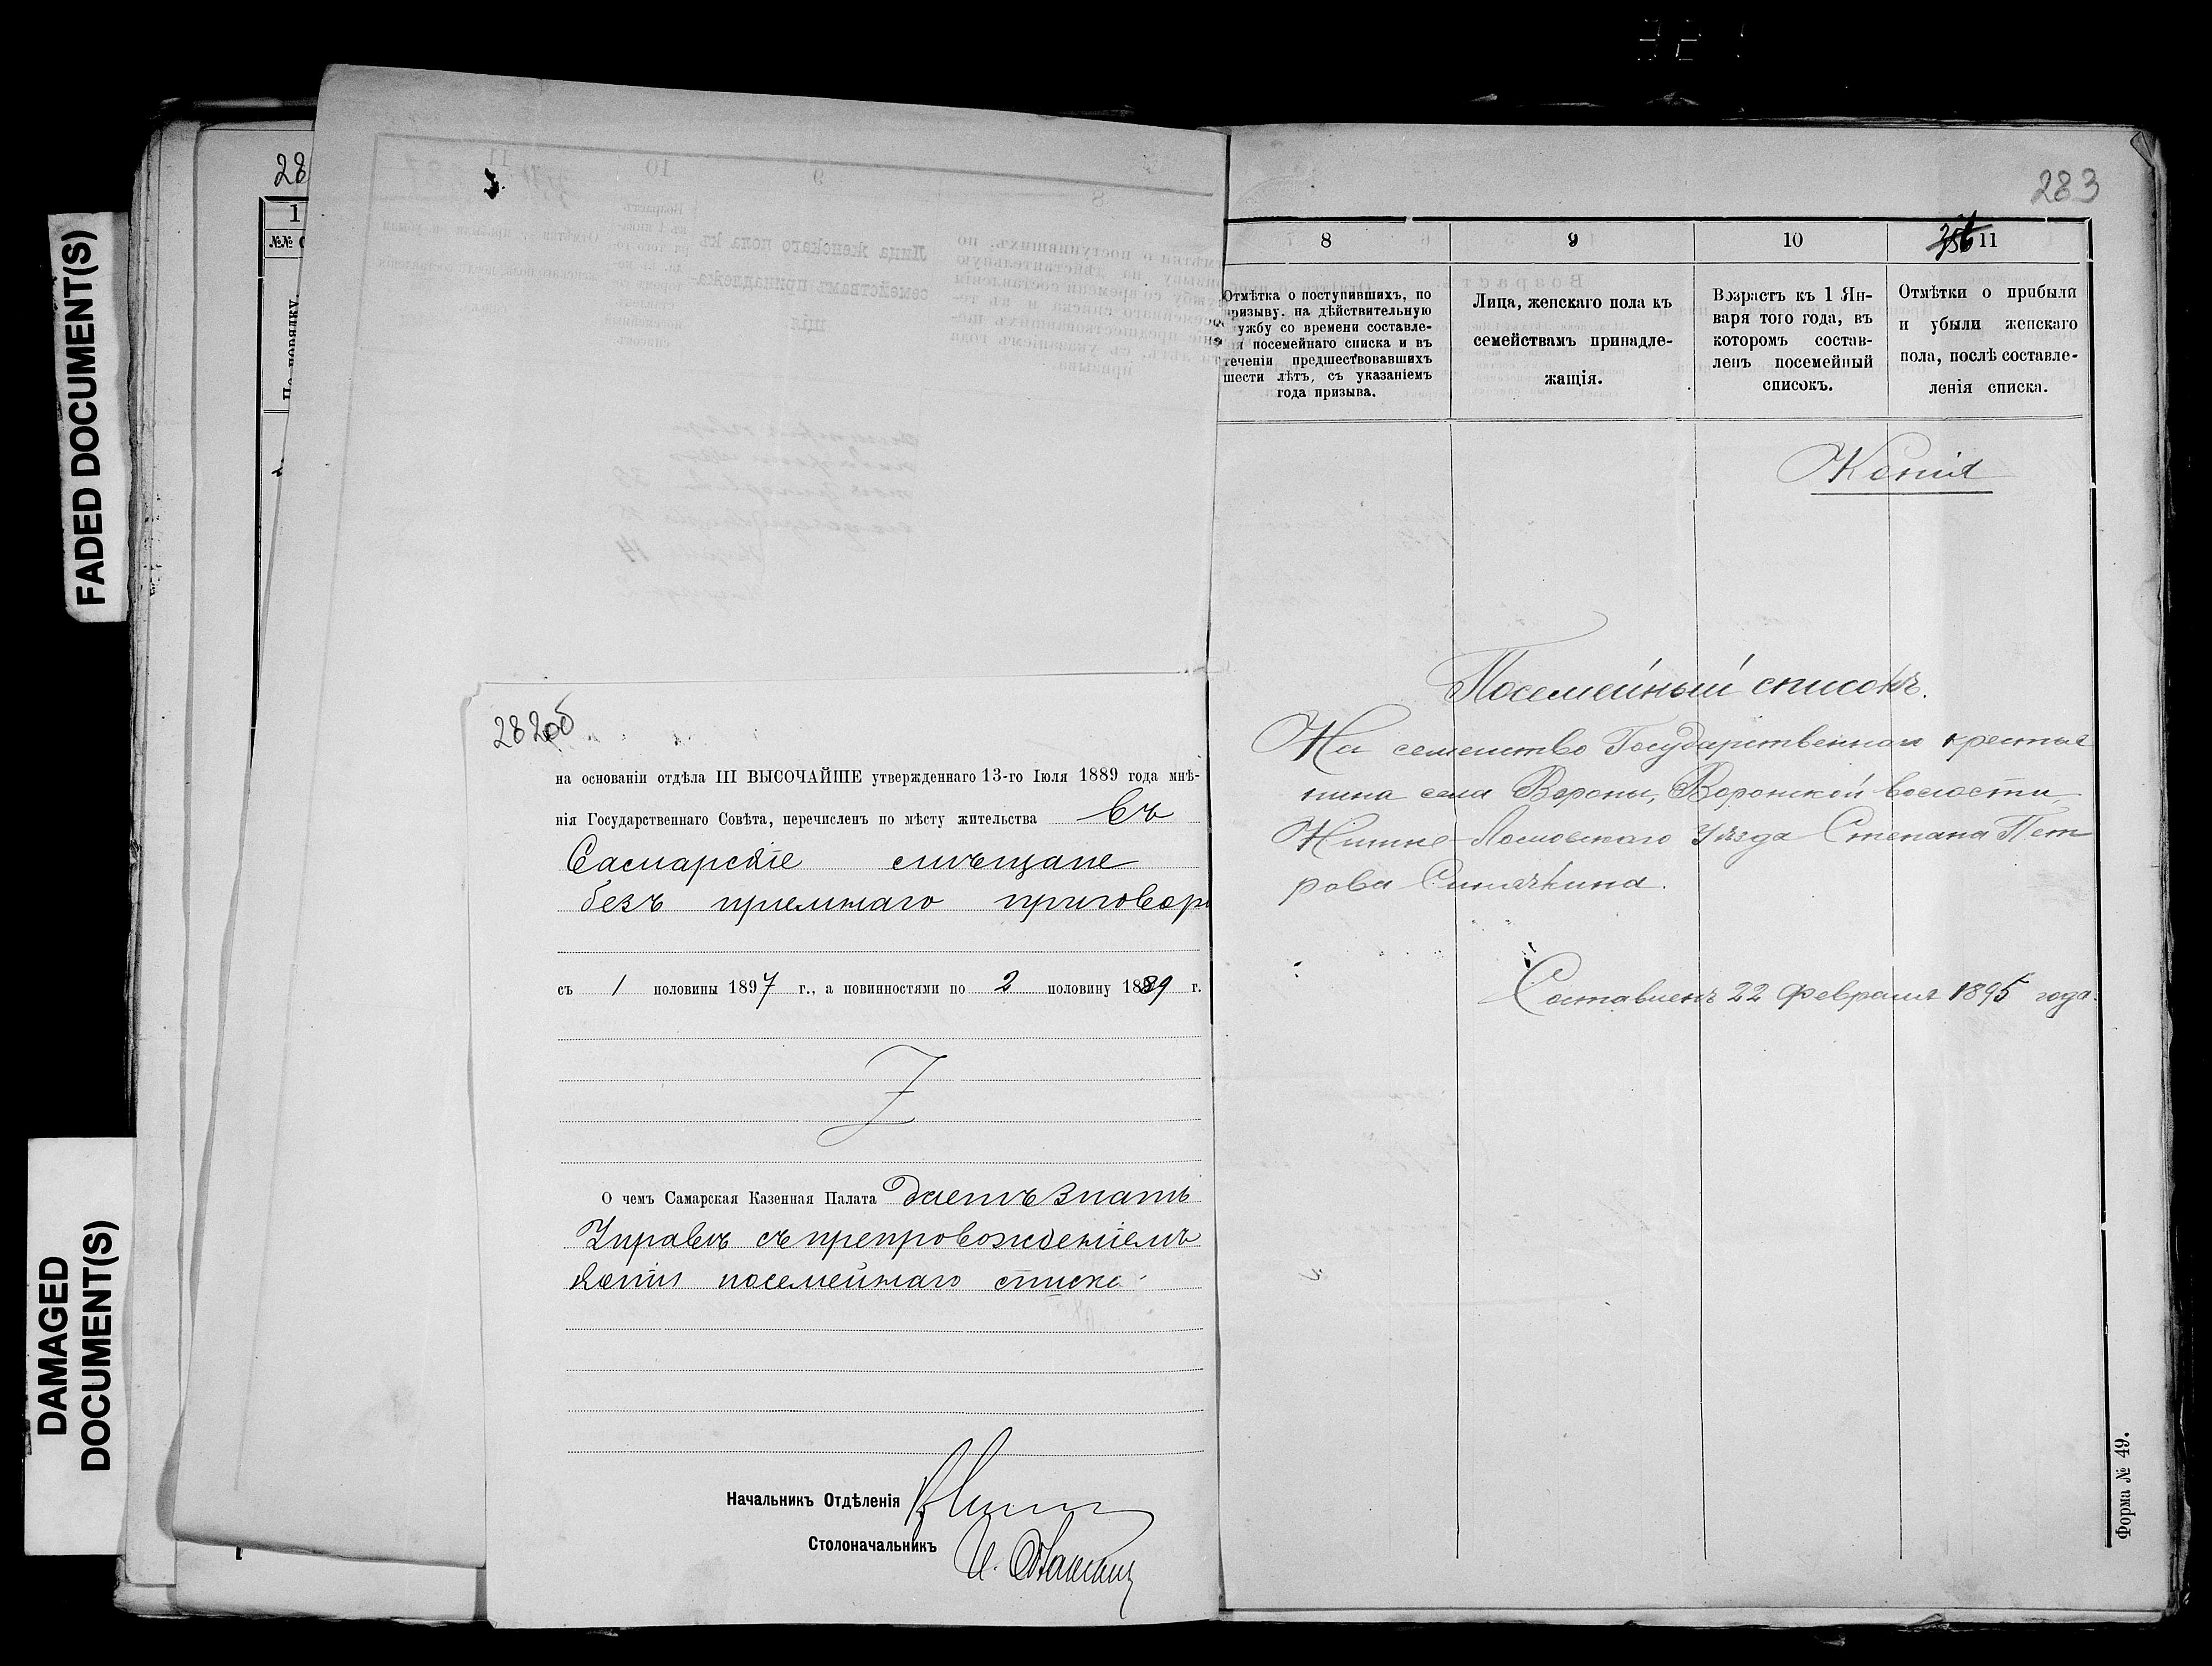 FADED DOCUMENT(S)
DAMAGED
DOCUMENT(S)
28
1
№№
По порядку.
282об
на основаніи отдѣла III ВЫСОЧАЙШЕ утвержденнаго 13-го Іюля 1889 года мнѣ-
нія Государственнаго Совѣта, перечисленъ по мѣсту жительства въ
Самарскіе мѣщане
безъ пріемнаго приговора
съ 1 половины 1897 г., а повинностями по 2 половину 1889 г.
О чемъ Самарская Казенная Палата даетъ знать
Управѣ съ препровожденіемъ
копіи посемейнаго списка
Начальникъ Отдѣленія
Столоначальникъ
283
8 9 10 11
Отмѣтка о поступившихъ, по
призыву. на дѣйствительную
службу со времени составле-
нія посемейнаго списка и въ
теченіи предшествовавшихъ
шести лѣтъ, съ указаніемъ
года призыва.
Лица, женскаго пола къ
семействамъ принадле-
жащія.
Возрастъ къ 1 Ян-
варя того года, въ
которомъ состав-
ленъ посемейный
списокъ.
Отмѣтки о прибыли
и убыли женскаго
пола, послѣ составле-
нія списка.
Копія
Посемейный списокъ.
На семейство Государственнаго крестья
нина села Вороны, Воронской волости,
Нижне-Ломовскаго Уѣзда Степана Пет
рова Синячкина.
Составленъ 22 Февраля 1895 года.
Форма № 49.